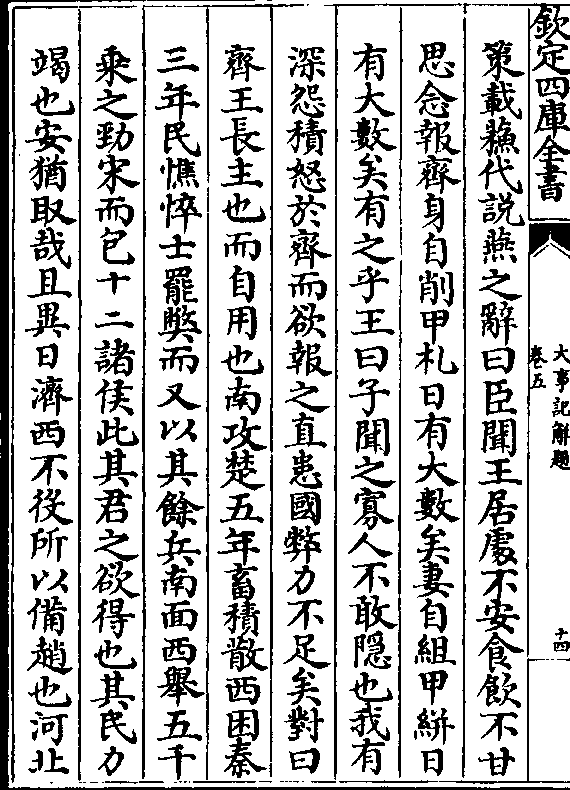 欽定四庫全書
大事記解題
卷五
十四
策載蘓代説燕之辭曰臣聞王居處不安食飲不甘
思念報齊身自削甲札曰有大數矣妻自組甲絣曰
有大數矣有之乎王曰子聞之寡人不敢隠也我有
深怨積怒於齊而欲報之直患國弊力不足矣對曰
齊王長主也而自用也南攻楚五年畜積散西困秦
三年民憔悴士罷獘而又以其餘兵南面西舉五千
乗之勁宋而包十二諸侯此其君之欲得也其民力
竭也安猶取哉且異日濟西不役所以備趙也河北